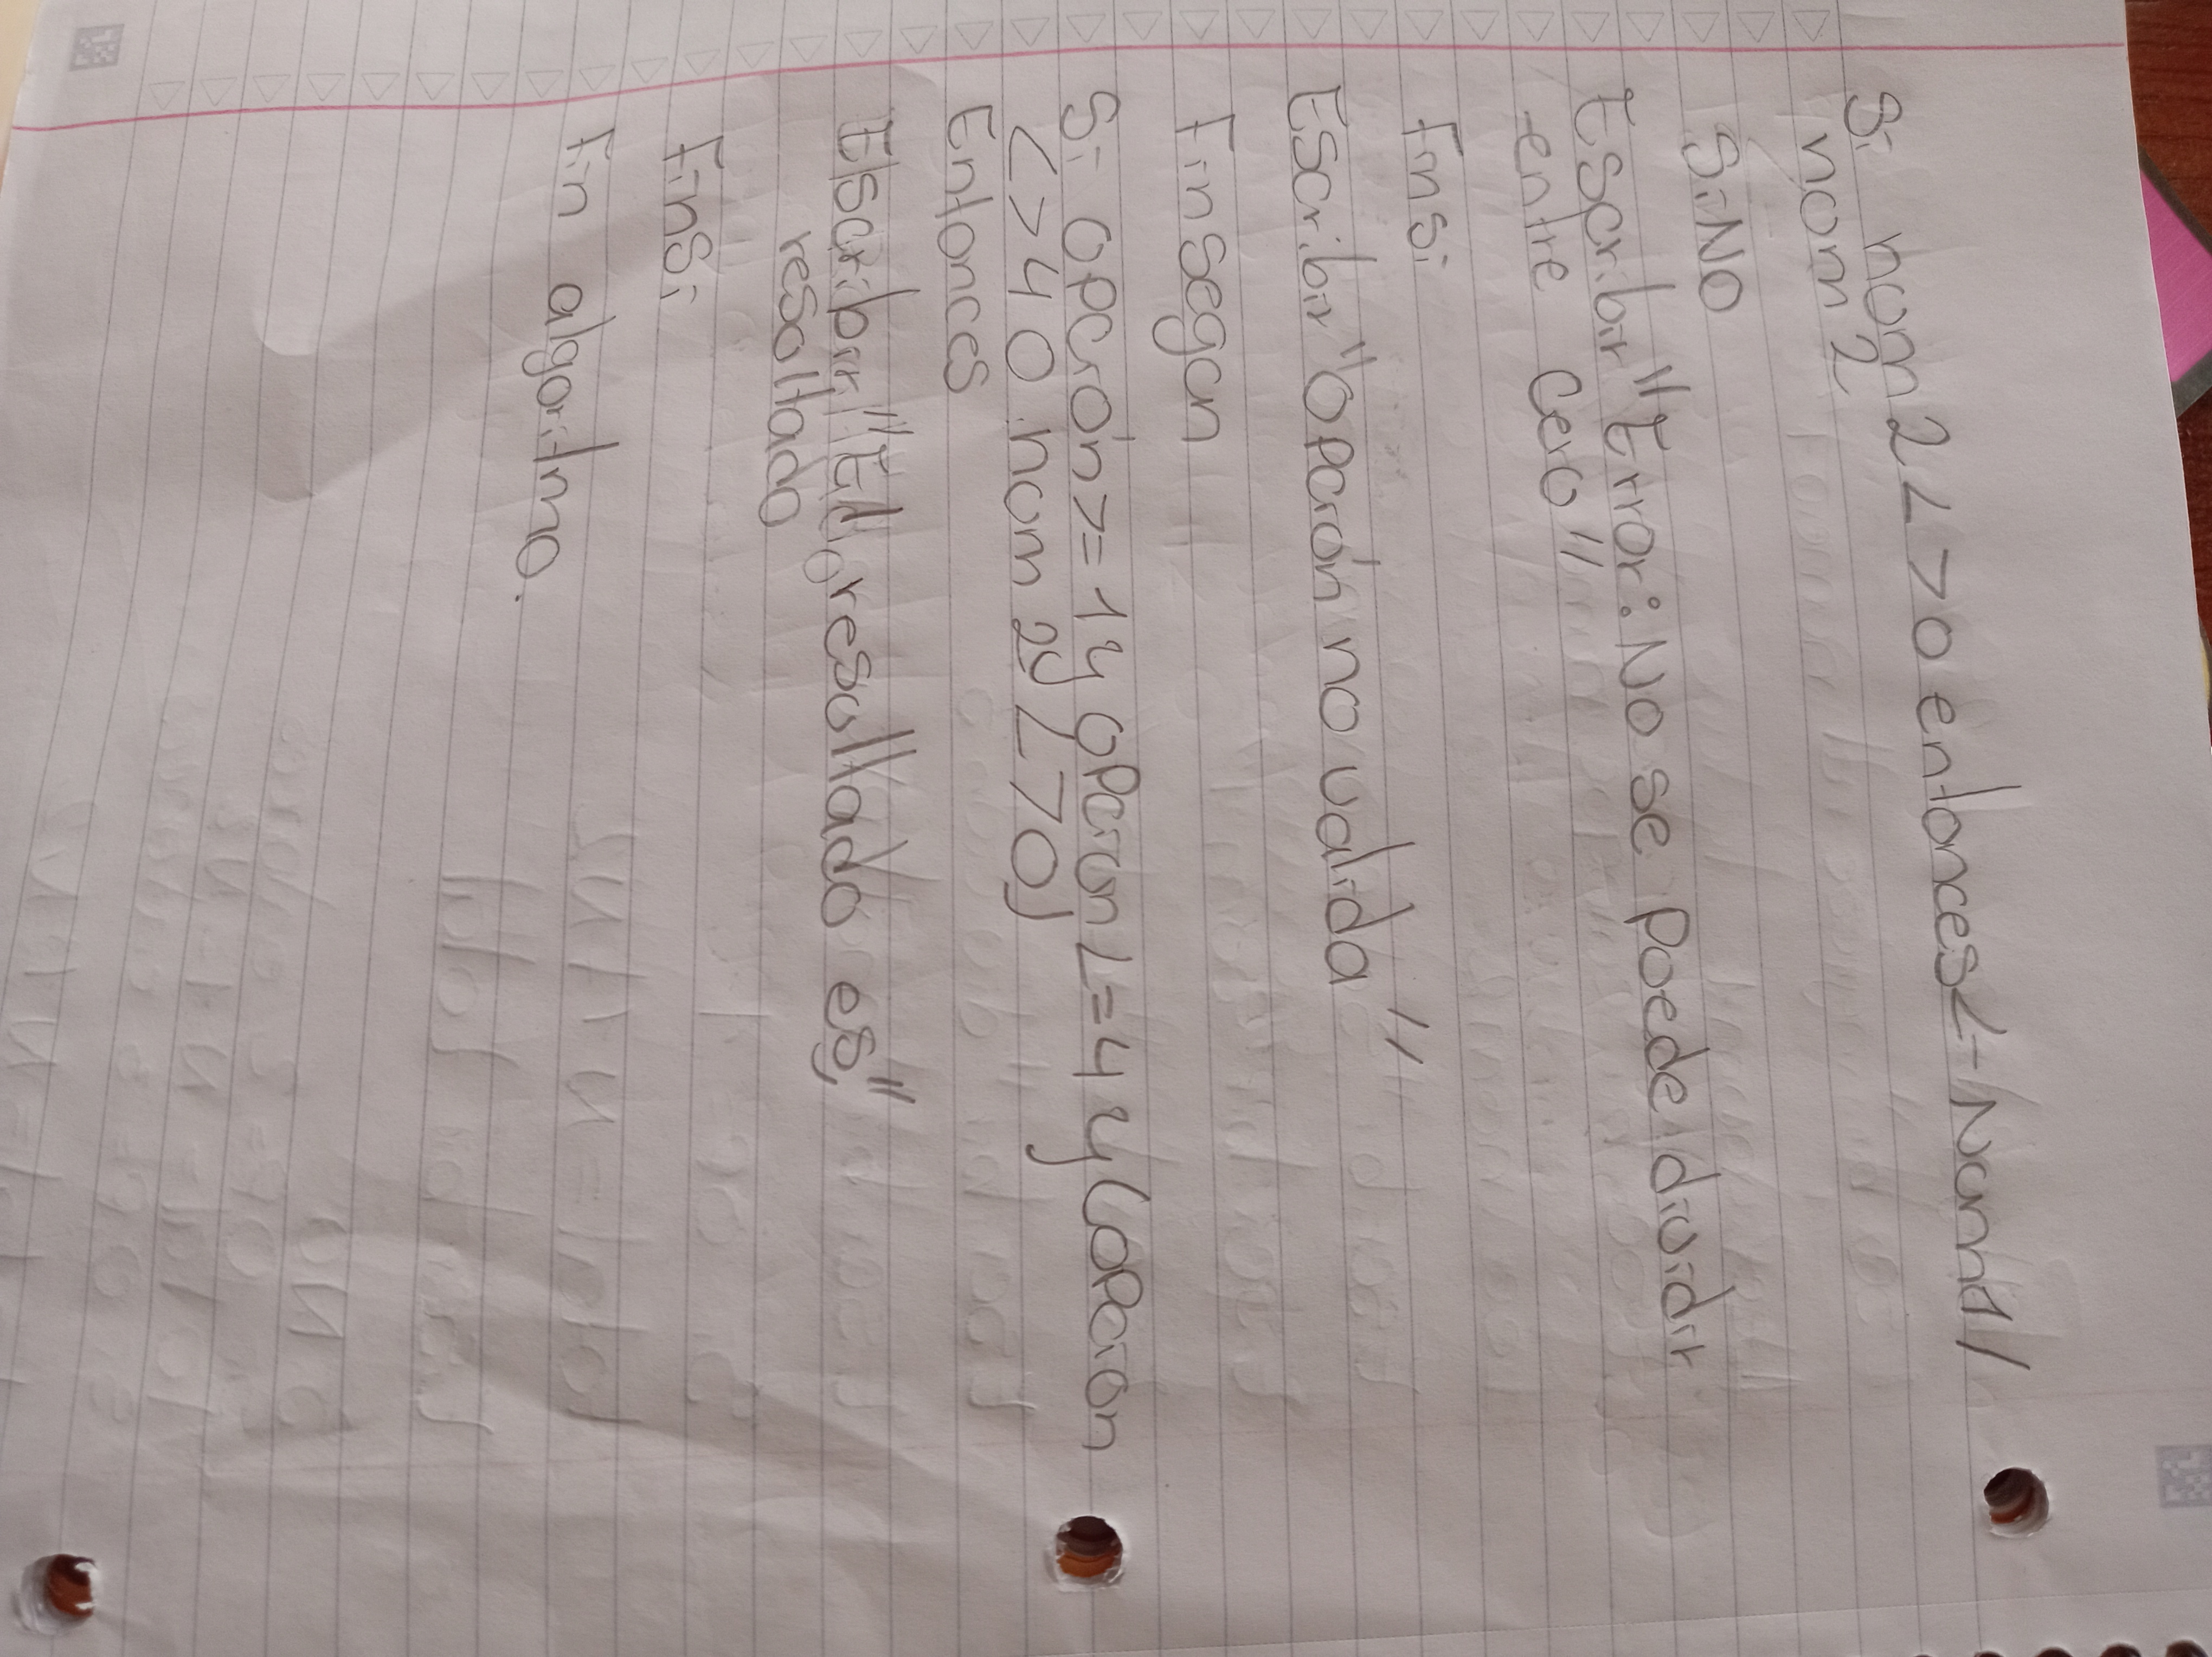 Si num2 <> 0 entonces <- Num1/
num2
SiNO
Escribir "Error: No se puede dividir
entre cero"
Finsi
Escribir "Opción no valida"
Finsegun
Si opción >= 1 y opcion <= 4 y (opcion
<> 4 O num2 y <> 0)
Entonces
Escribir "El resultado es,"
resultado
FinSi
Fin algoritmo.